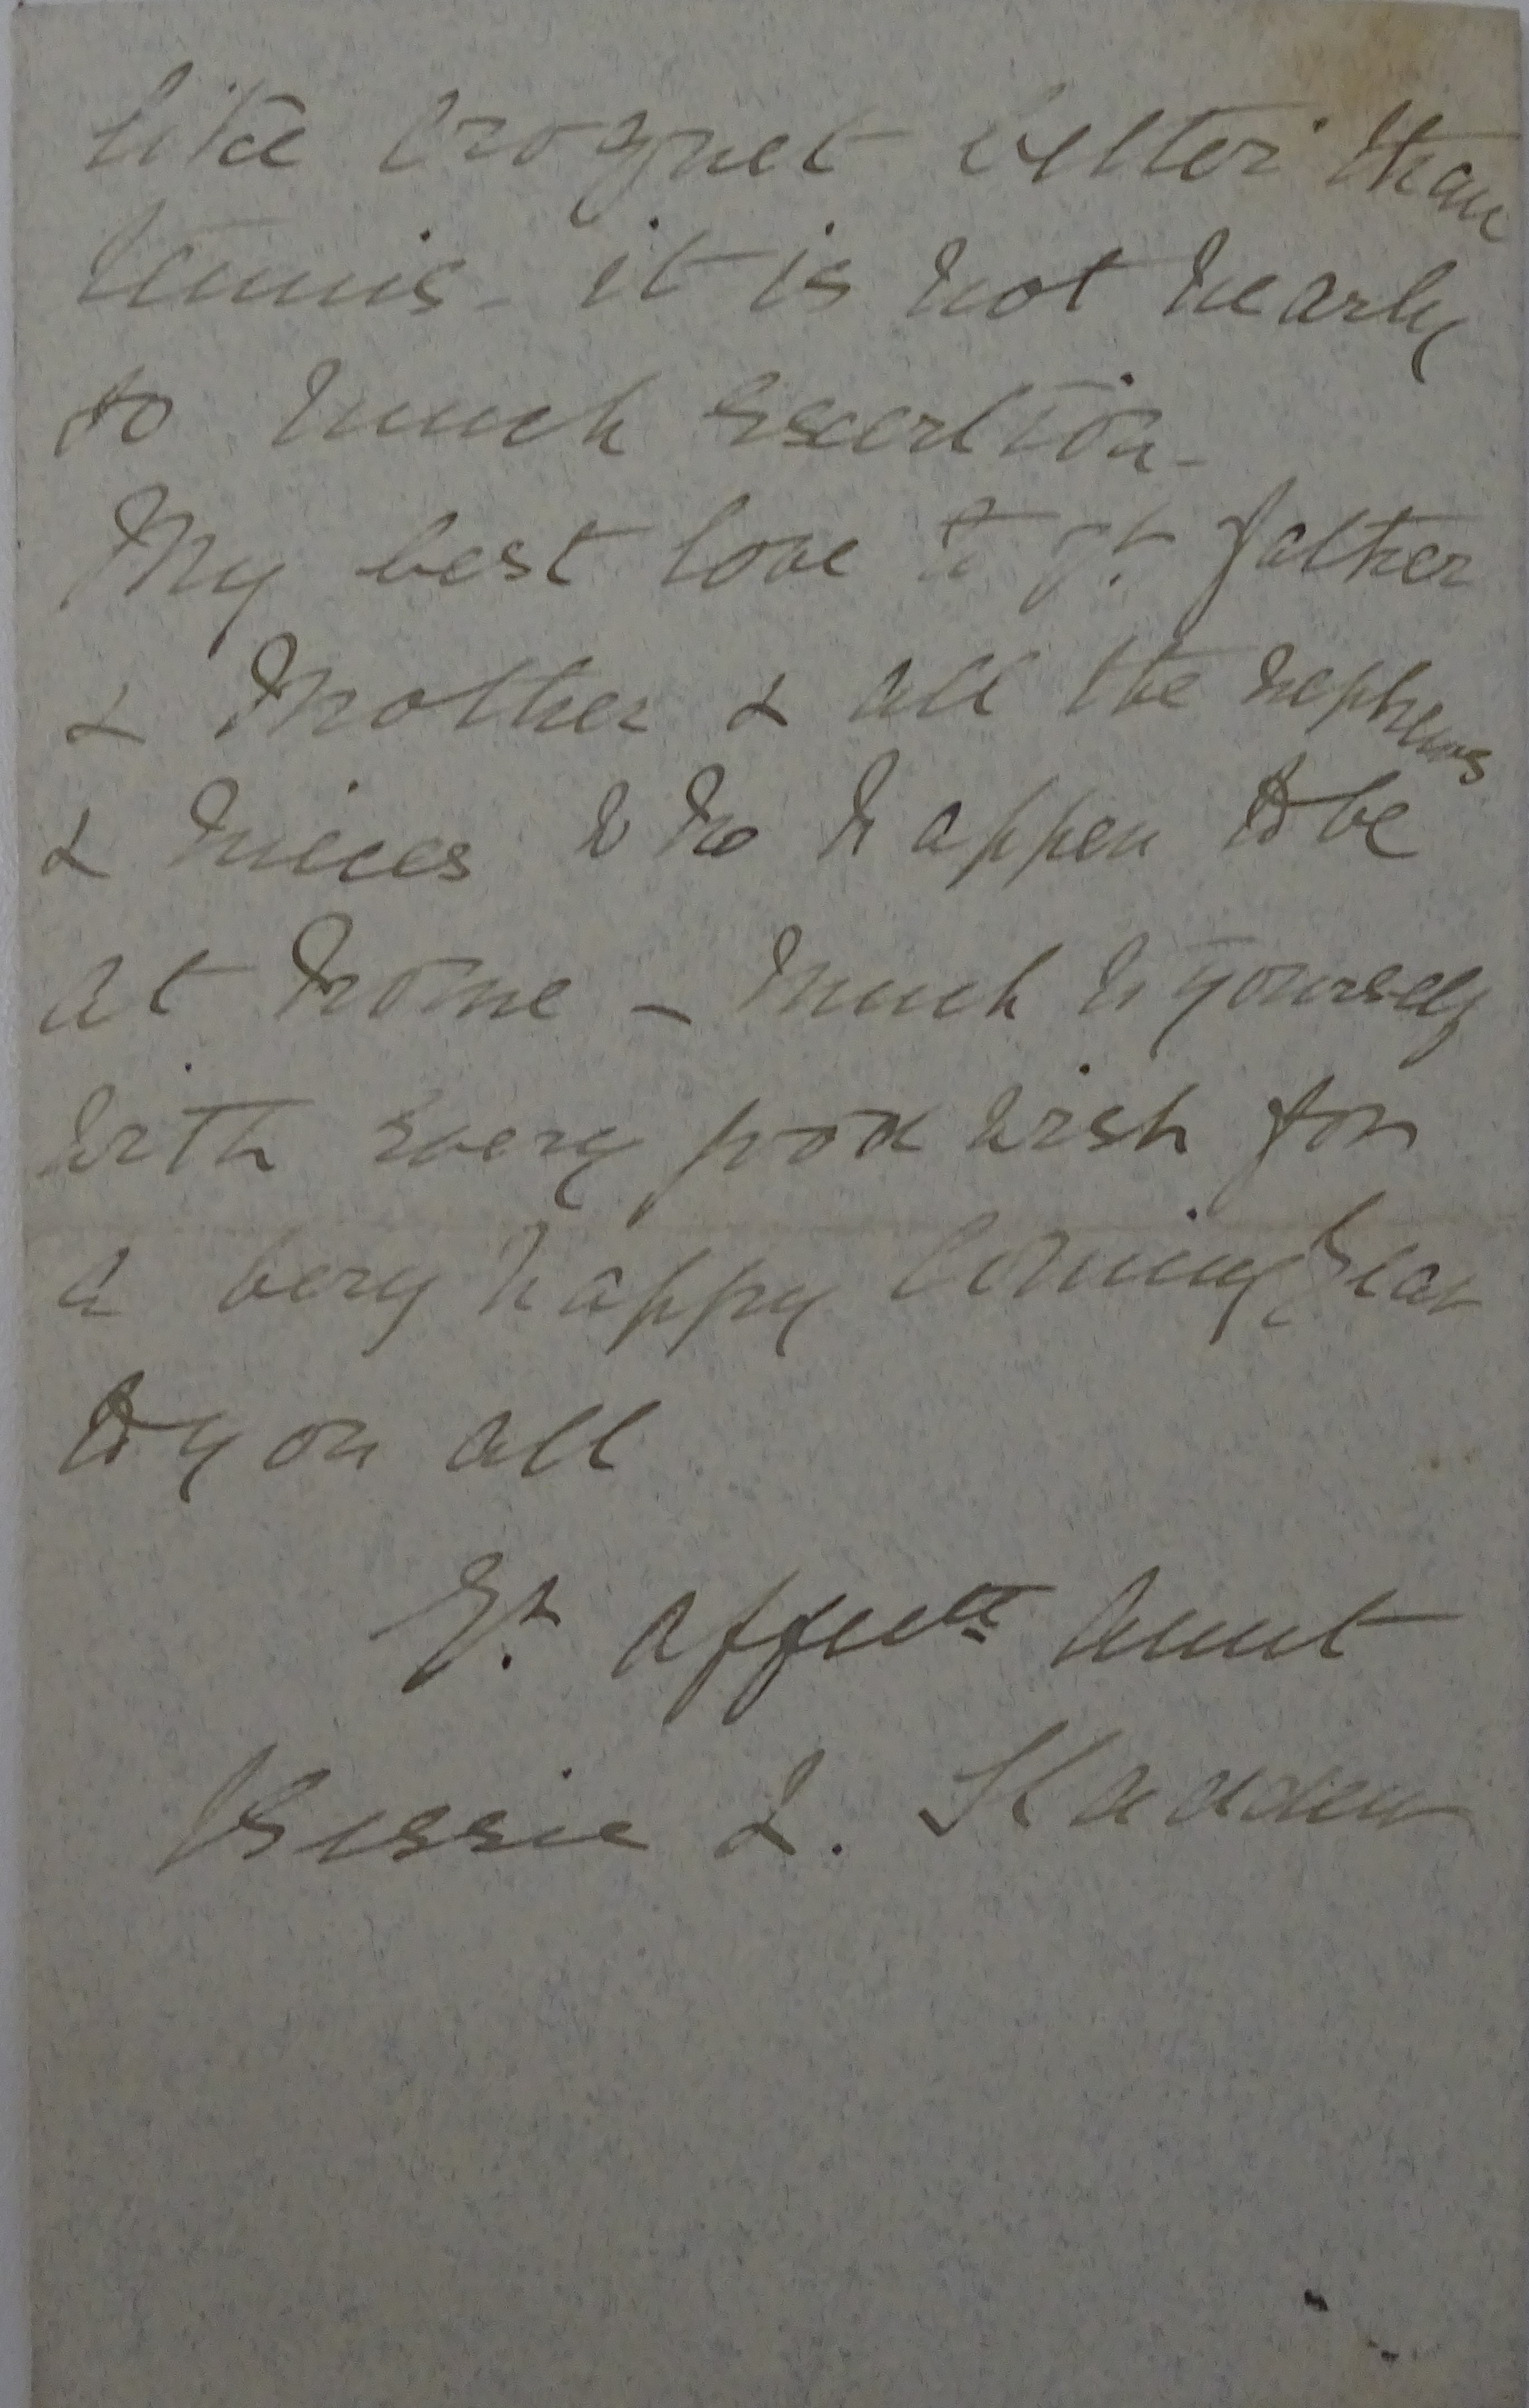 like Croquet better than
tennis - it is not nearly
so much exertion -
My best love to yr. father
& Mother & all the nephews
& nieces who happen to be
at home - much to yourself
with every good wish for
a very happy Coming Year
to you all
Yr. affecte Aunt
Bessie L.